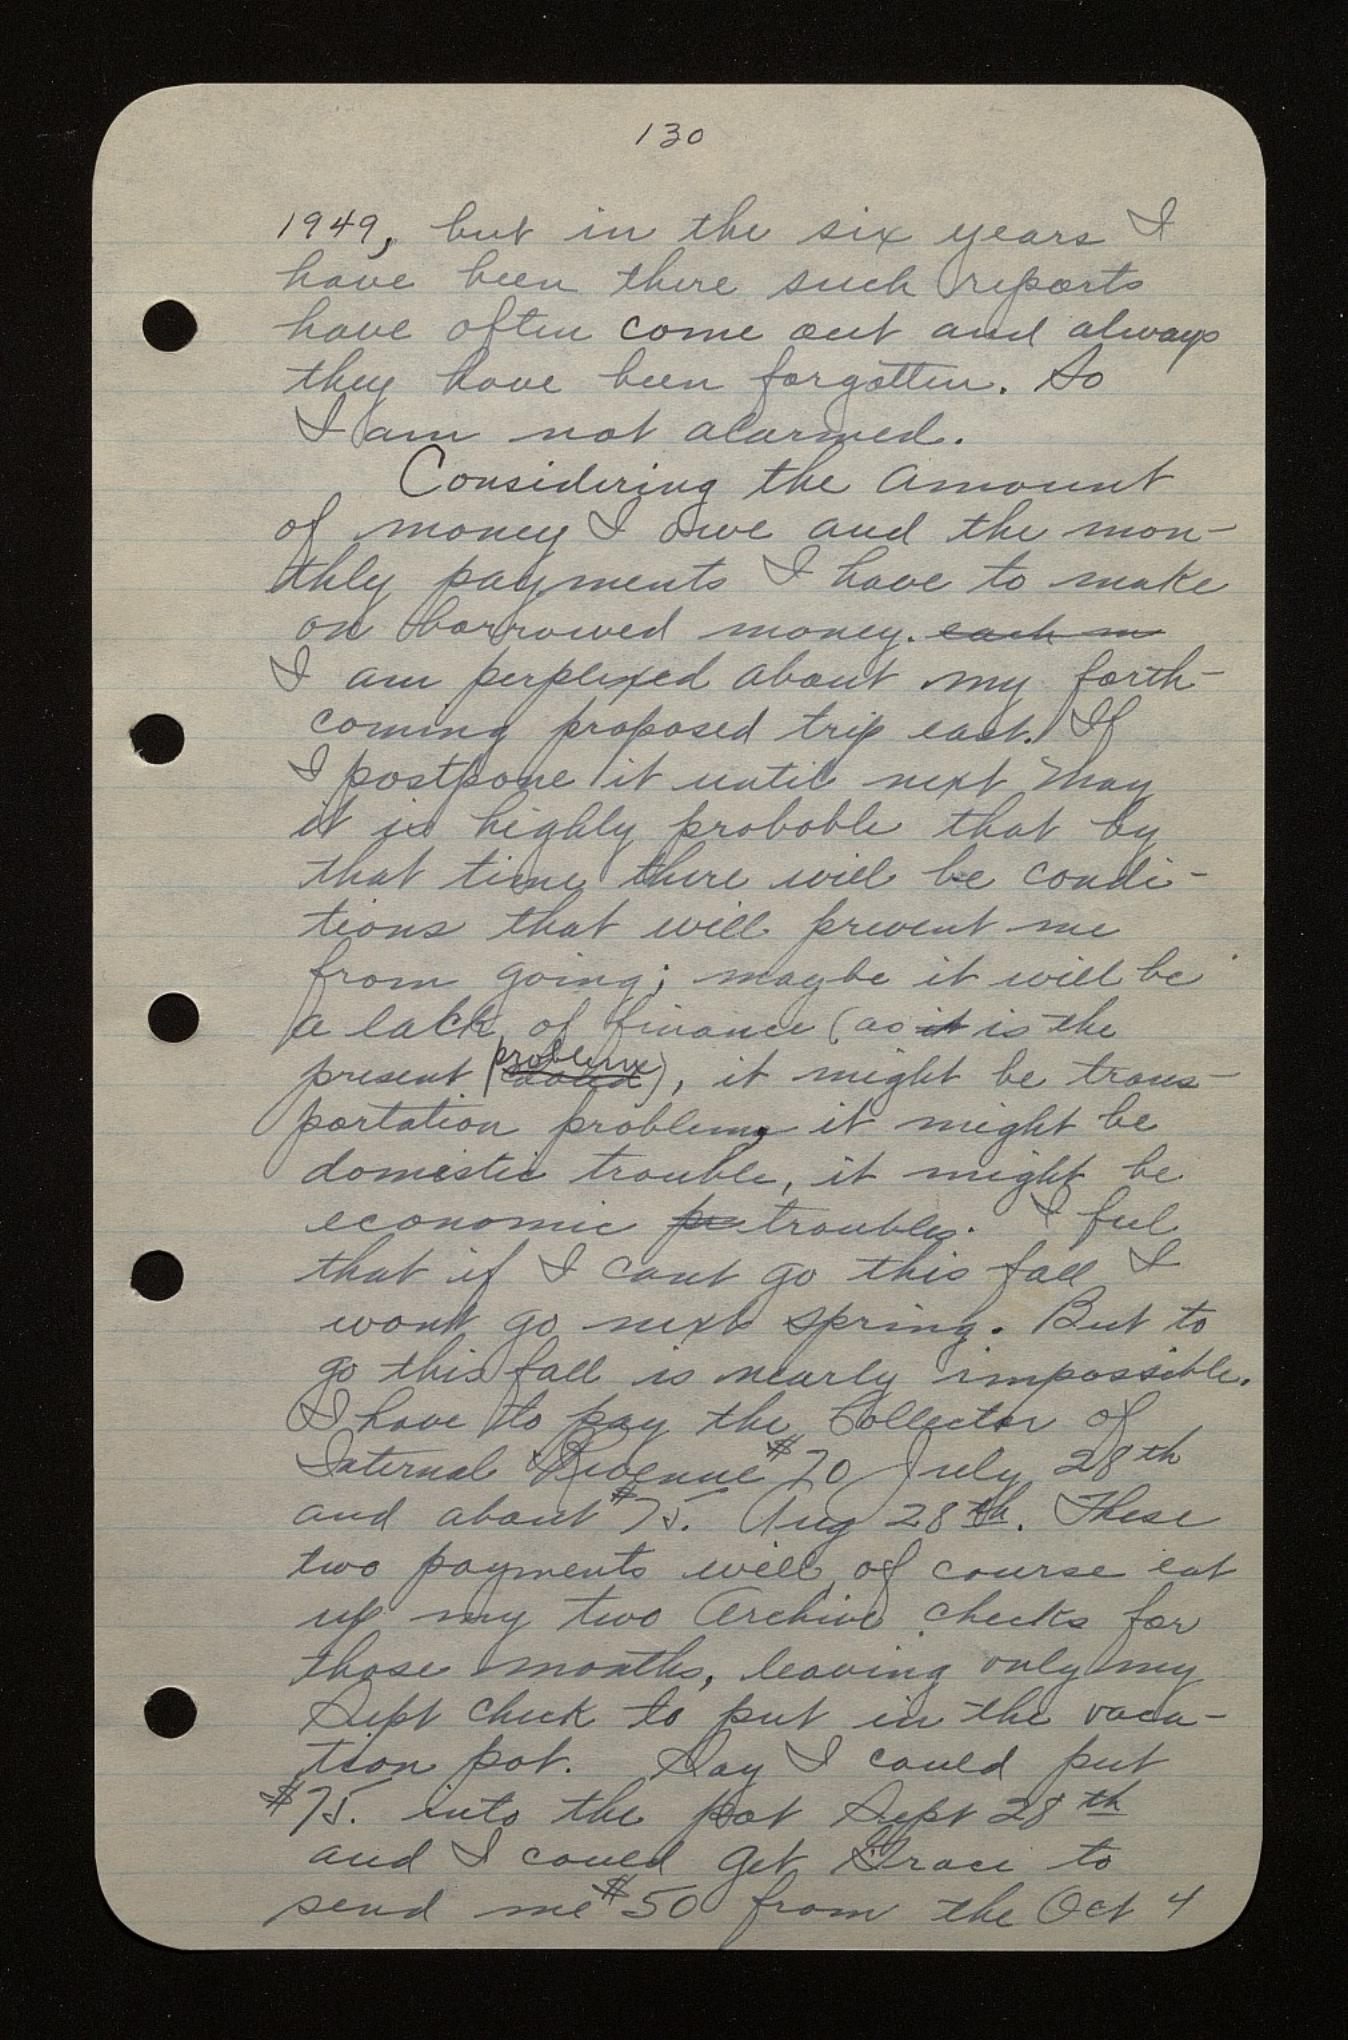 130
1949, but in the six years I
have been there such reports
have often come out and always
they have been forgotten. So
I am not alarmed.
Considering the amount
of money I owe and the mon-
thly payments I have to make
on borrowed money. each m
I am perplexed about my forth-
coming proposed trip east. If
I postpone it until next May
it is highly probable that by
that time there will be condi-
tions that will prevent me
from going; maybe it will be
a lack of finance (as it is the
problem
present ), it might be trans-
portation problems it might be
domestic trouble, it might be
economic pr troubles. I feel
that if I cant go this fall I
wont go next spring. But to
go this fall is nearly impossible.
I have to pay the Collector of
Internal Revenue $70 July 28th
and about $75. Aug 28th. These
two payments will of course eat
up my two Archive checks for
those months, leaving only my
Sept check to put in the vaca-
tion pot. Say I could put
$75. into the pot Sept 28th
and I could get Grace to
send me $50 from the Oct 4